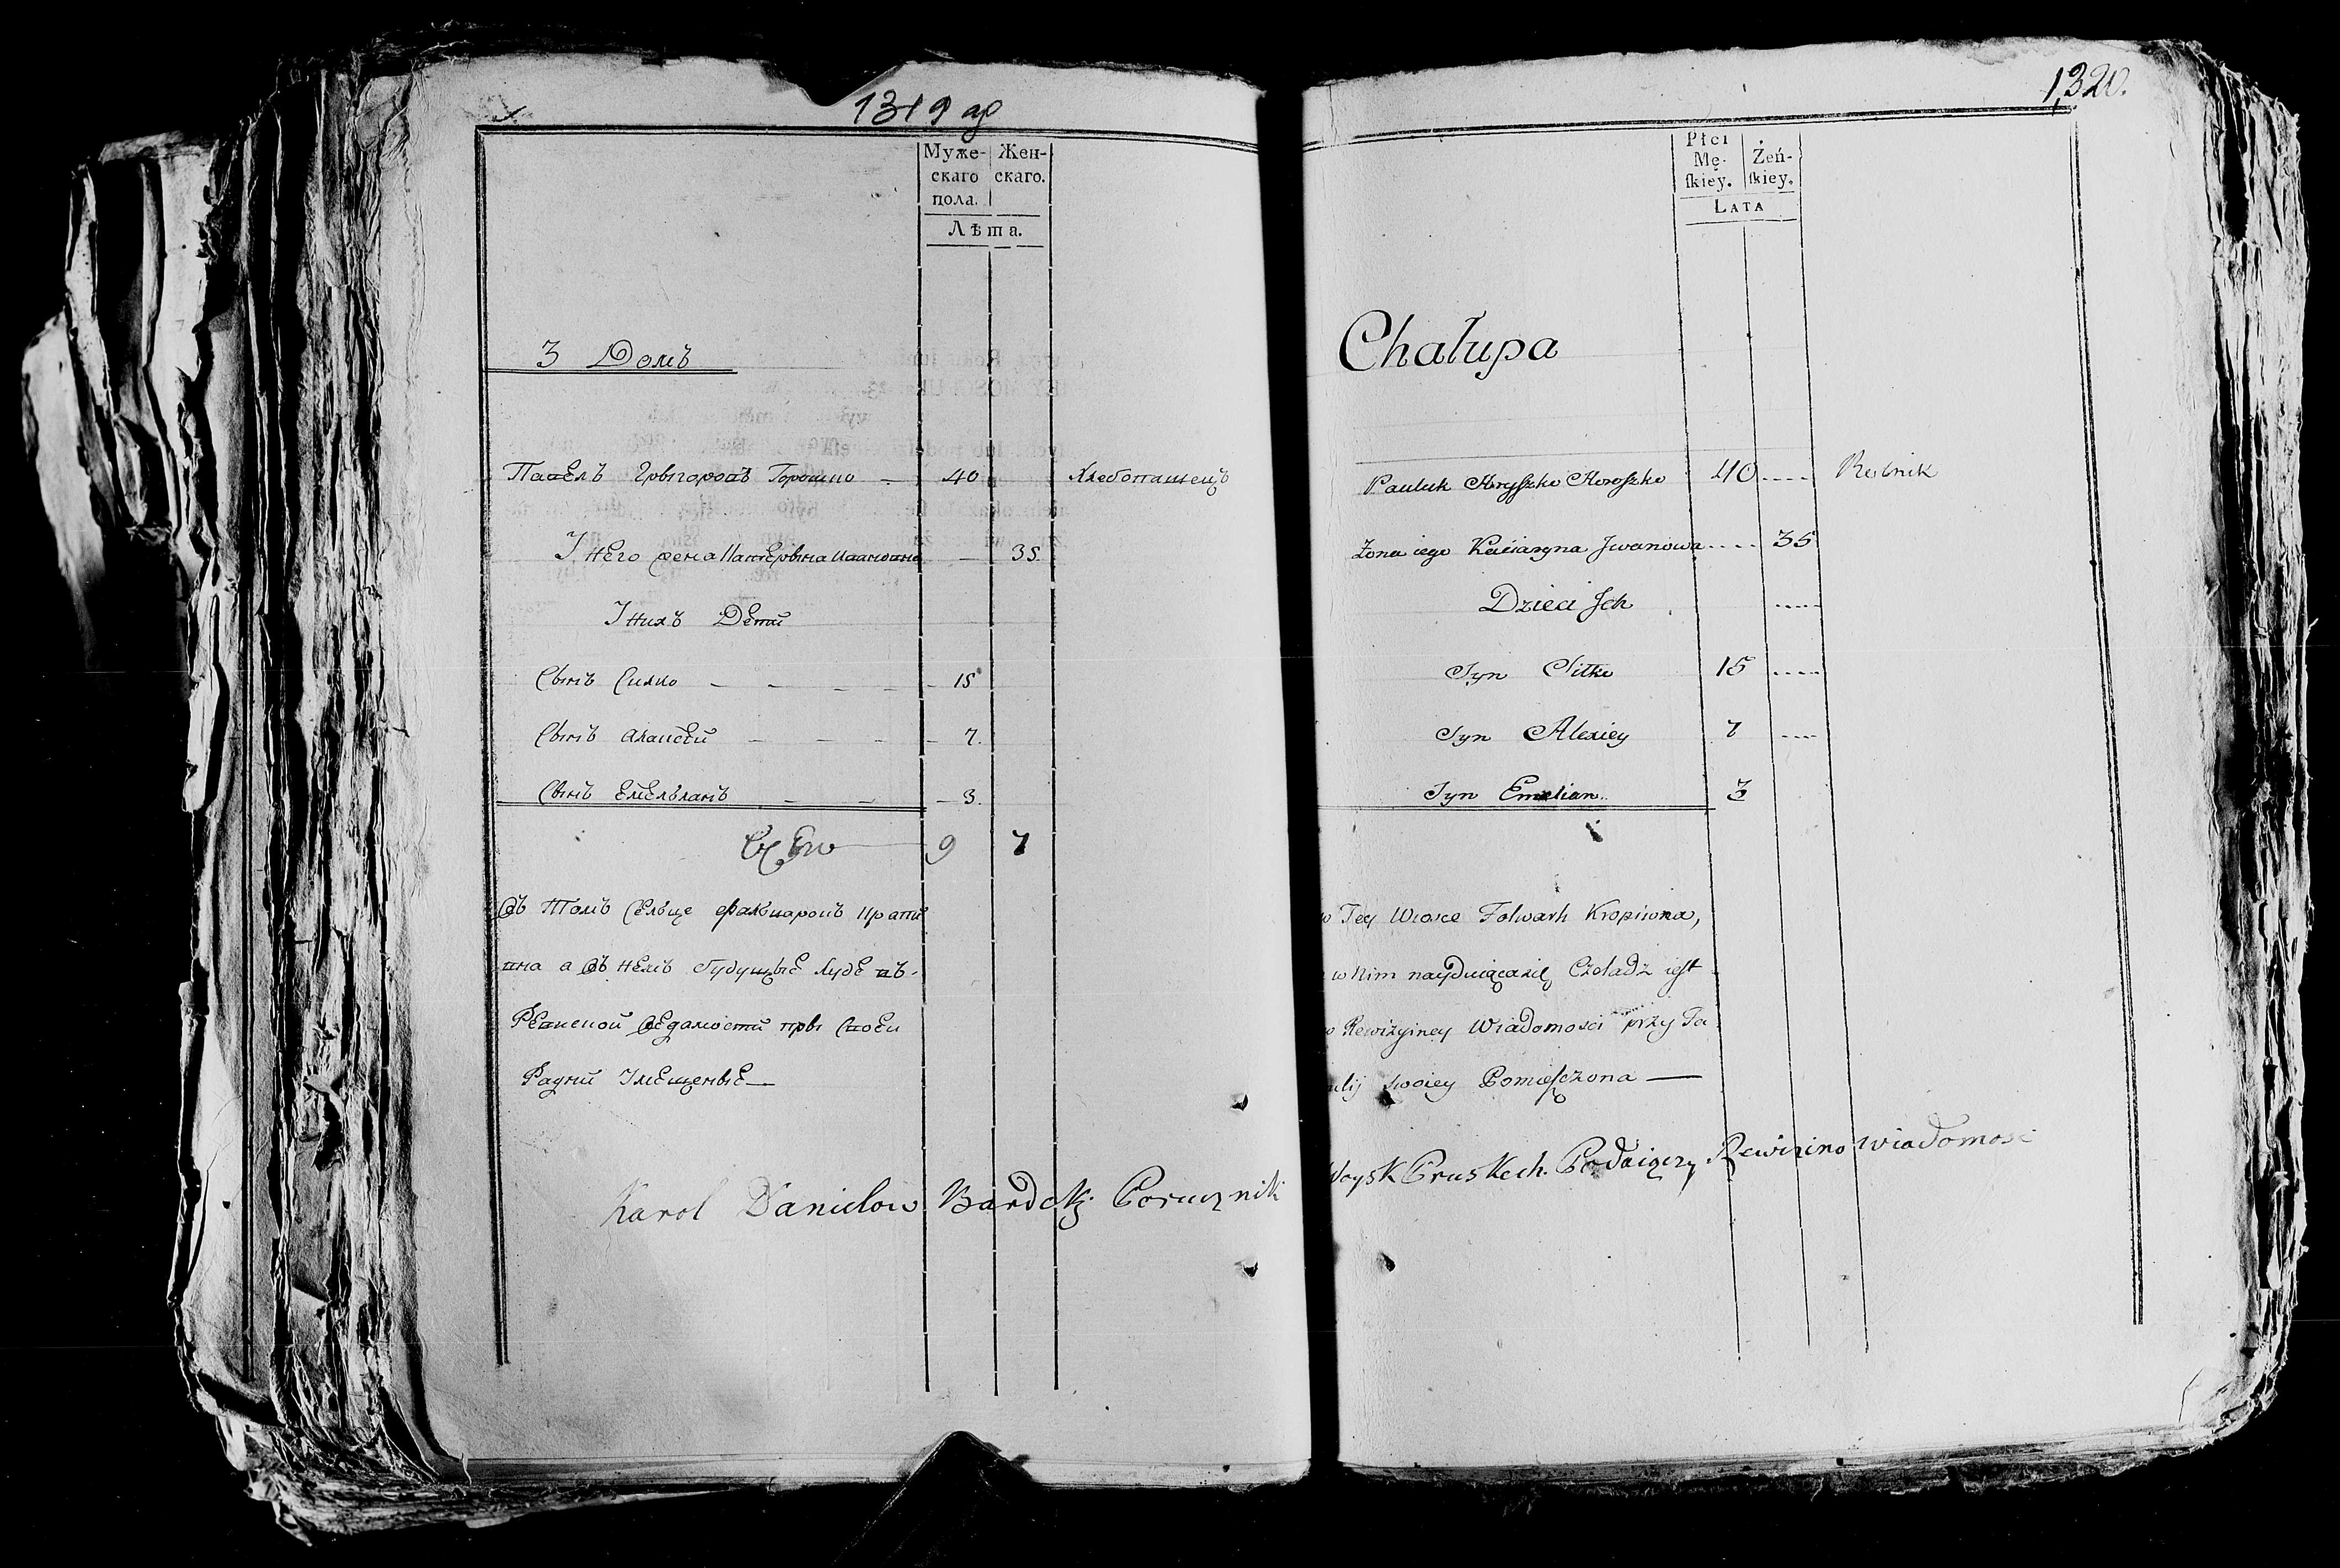 1319 ар
Муже-
скаго
пола.
Жен-
скаго.
Лѣта.
3 Домъ
Павелъ Грыгоровъ Горошко — 40 Хлебопашецъ
У него жена Катерына Иванова — 35
У нихъ Дети
Сынъ Силко — — — — 15
Сынъ Алексей — — — — 7.
Сынъ Емельянъ — — — 3.
9 7
Въ томъ Сельце фальварокъ Крапи
вна а въ немъ будущые люде въ
Ревиской Ведамости пры своей
Радни Умещеные —
Karol Danielow Bardcki Porucznik
1320.
Płci
Mę-
ſkiey.
Żeń-
ſkiey.
LATA
Chałupa
Pauluk Hryſzko Horoszko 40 .... Rolnik
Zona iego Kaciaryna Jwanowa .... 35
Dzieci Jch ....
Syn Silko 15 ....
Syn Alexiey 7 ....
Syn Emelian. 3
w Tey Wiosce Folwark Kropiwna,
w Nim nayduiącasię Czeladź ieſt
w Rewizyiney Wiadomosci przy Fa
milij swoiey Pomieſzczona —
Woysk Pruskich. Podaiączy Rewizino wiadomosc